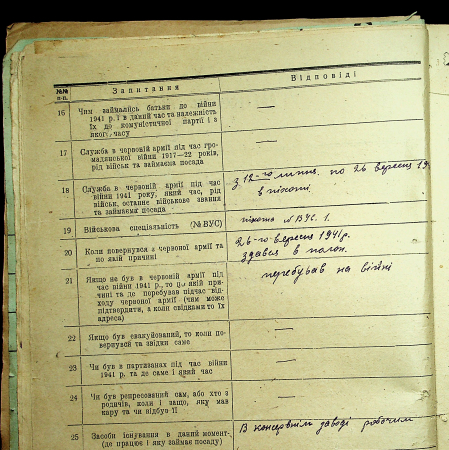 №№ п-п.
Запитання
Відповіді
16
Чим займались батьки до війни
1941 р. і в даний час та належність
їх до комуністичної партії і з
якого часу
—
17
Служба в червоній армії під час гро-
мадянської війни 1917—22 років,
рід військ та займаєма посада
—
18
Служба в червоній армії під час
війни 1941 року, який час, рід
військ, останнє військове звання
та займаєма посада
з 12-го липня по 26 вересня 19
в піхоті.
19
Військова спеціяльність (№ ВУС)
піхота № ВУС. 1.
20
Коли повернувся з червоної армії та
по якій причині
26-го вересня 1941 р.
здався в полон.
21
Якщо не був в червоній армії під
час війни 1941 р., то по якій при-
чині та де перебував підчас від-
ходу червоної армії (чим може
підтвердити, а коли свідками то їх
адреса)
перебував на війні
22
Якщо був евакуйований, то коли по-
вернувся та звідки саме
—
23
Чи був в партизанах під час війни
1941 р. та де саме і який час
—
24
Чи був репресований сам, або хто з
родичів, коли і защо, яку мав
кару та чи відбув її
—
25
Засоби існування в даний момент
(де працює і яку займає посаду)
В консервнім заводі робочим